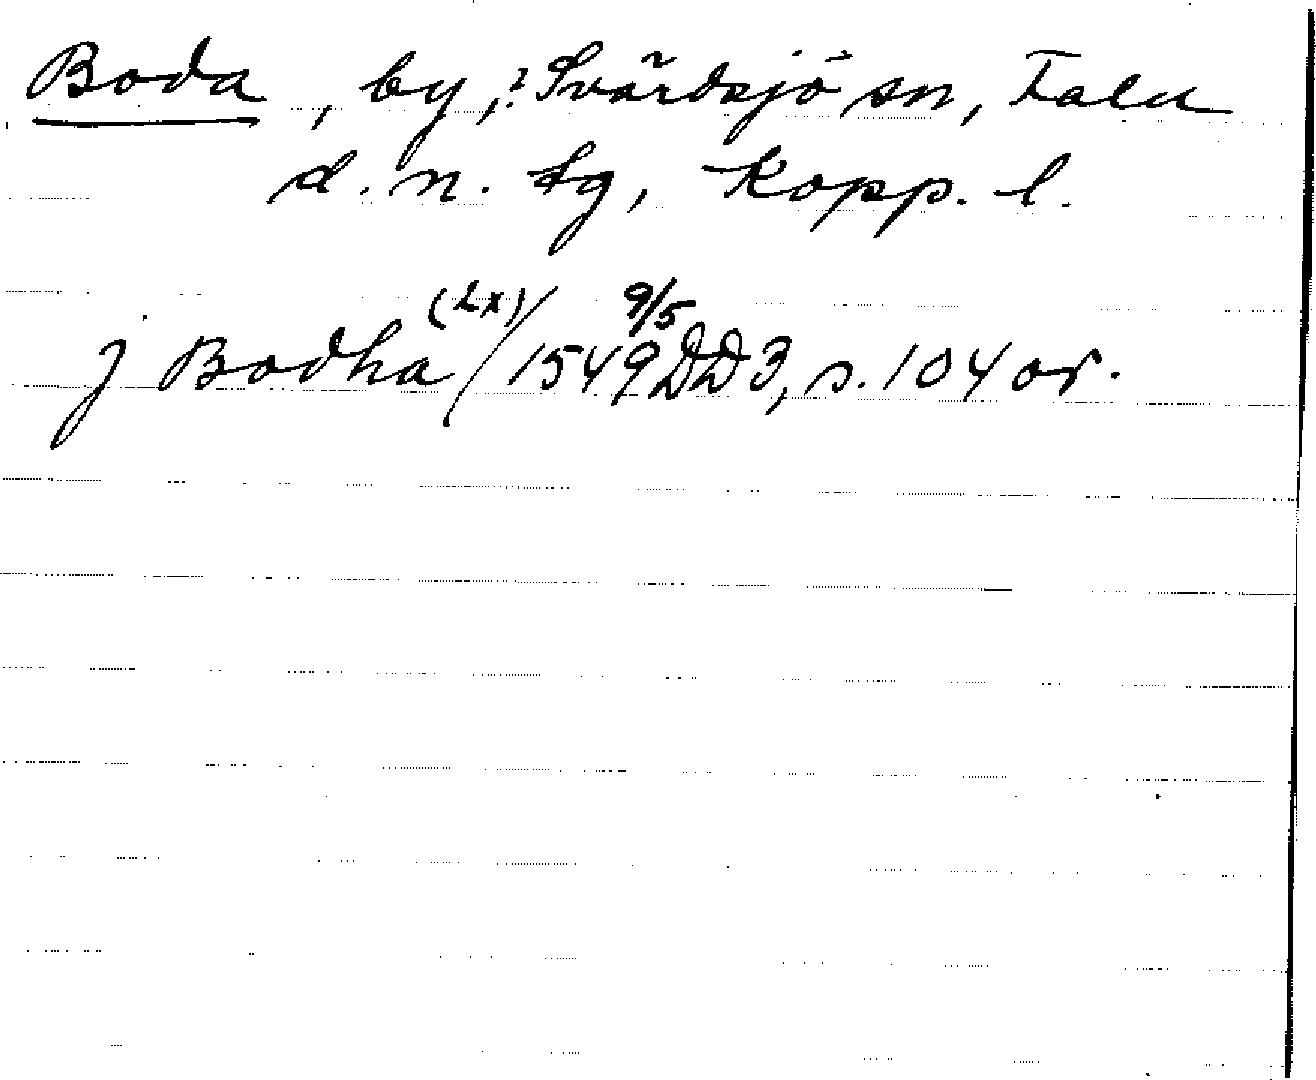 Boda, by, ? Svärdsjö sn, Falu
d. n. tg, Kopp. l.
j Bodha (2x) / 1549 9/5 DD 3, s. 104 or.